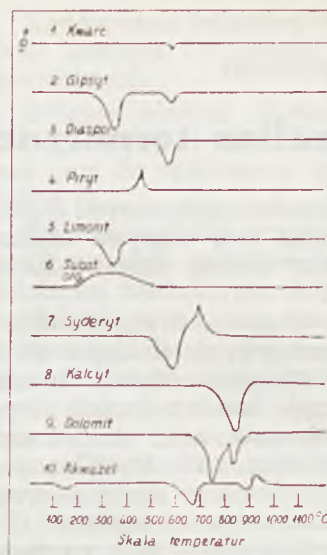 1 Kwarc
2 Gipsyt
3 Diaspor
4 Piryt
5 Limonit
6 Subst
org
7 Syderyt
8 Kalcyt
9 Dolomit
10
100 200 300 400 500 600 700 800 900 1000 1100 °C
Skala temperatur